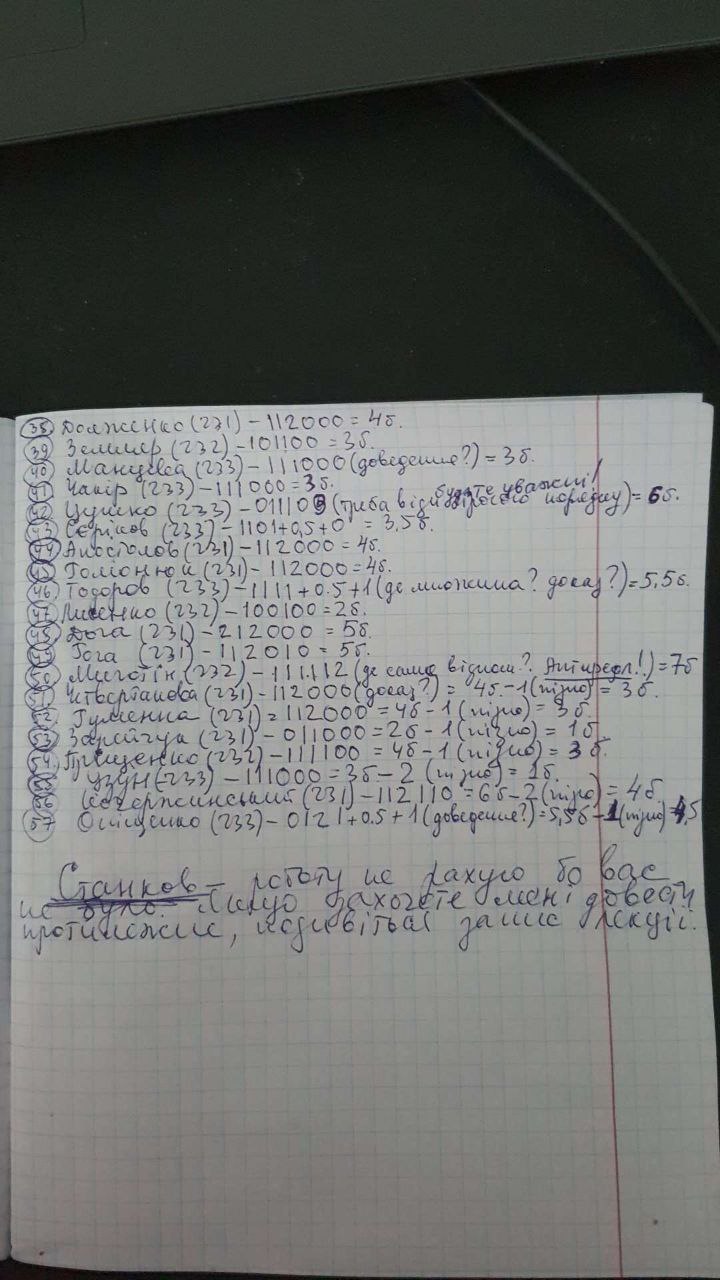 38 Долженко (231) - 112000 = 4б.
39 Землер (232) - 101100 = 3б.
40 (233) - 111000 (доведення?) = 3б.
41 Чакір (233) - 111000 = 3б.
будьте уважні!
42 Цушко (233) - 01110 (треба відн. порядку) = 6б.
43 Сєріков (233) - 1101+0,5+0 = 3,5б.
44 Апостолов (231) - 112000 = 4б.
45 (231) - 112000 = 4б.
46 Тодоров (233) - 1111+0.5+1 (де множина? доказ?) = 5,5б.
47 Лисенко (232) - 100100 = 2б.
48 Дога (231) - 212000 = 5б.
49 Гога (231) - 112010 = 5б.
50 (232) - 111112 (де саме віднош.? Антирефл.!) = 7б
51 Четвертакова (231) - 112000 (доказ?) = 4б - 1 (пізно) = 3б.
52 Гуменна (231) = 112000 = 4б - 1 (пізно) = 3б.
53 (231) - 011000 = 2б - 1 (пізно) = 1б.
54 Грищенко (232) - 111100 = 4б - 1 (пізно) = 3б.
55 Узун (233) - 111000 = 3б - 2 (пізно) = 1б.
56 Кочержинський (231) - 112110 = 6б - 2 (пізно) = 4б.
57 Оніщенко (233) - 0121+0.5+1 (доведення?) = 5,5б - 1 (пізно) 4,5
Станков - роботу не рахую бо вас
не було. Якщо захочете мені довести
протилежне, подивіться запис лекції.